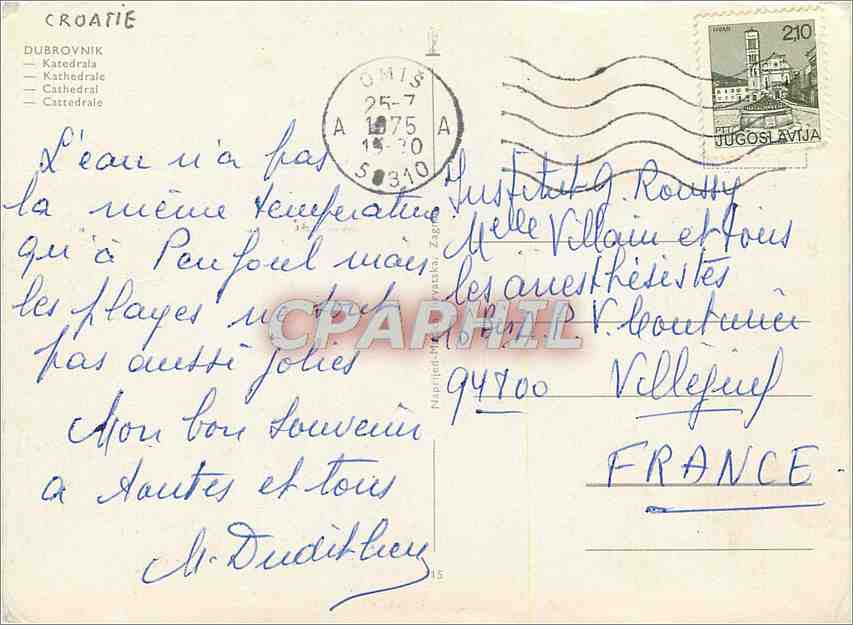 CROATIE
DUBROVNIK
— Katedrala
— Kathedrale
— Cathedral
— Cattedrale
OMIŠ
25-7
1975
A A
58310
HVAR
2,10
JUGOSLAVIJA
L'eau n'a pas
la même température
qu'à mais
les plages ne sont
pas aussi jolies
Mon bon souvenir
a toutes et tous
M.
Institut G. Roussy
Melle Villain et tous
les anesthésistes
16 bis P. V. Couturier
94700 Villejuif
FRANCE
Naprijed-
Zagreb
CPAPHIL
15